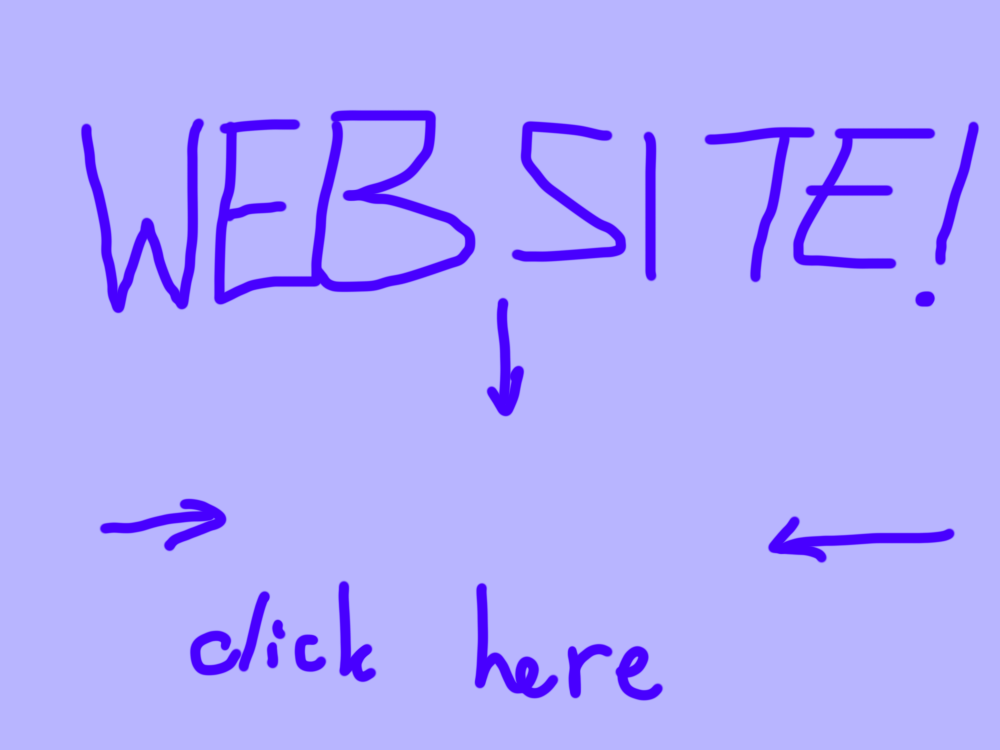 WEBSITE!
click here